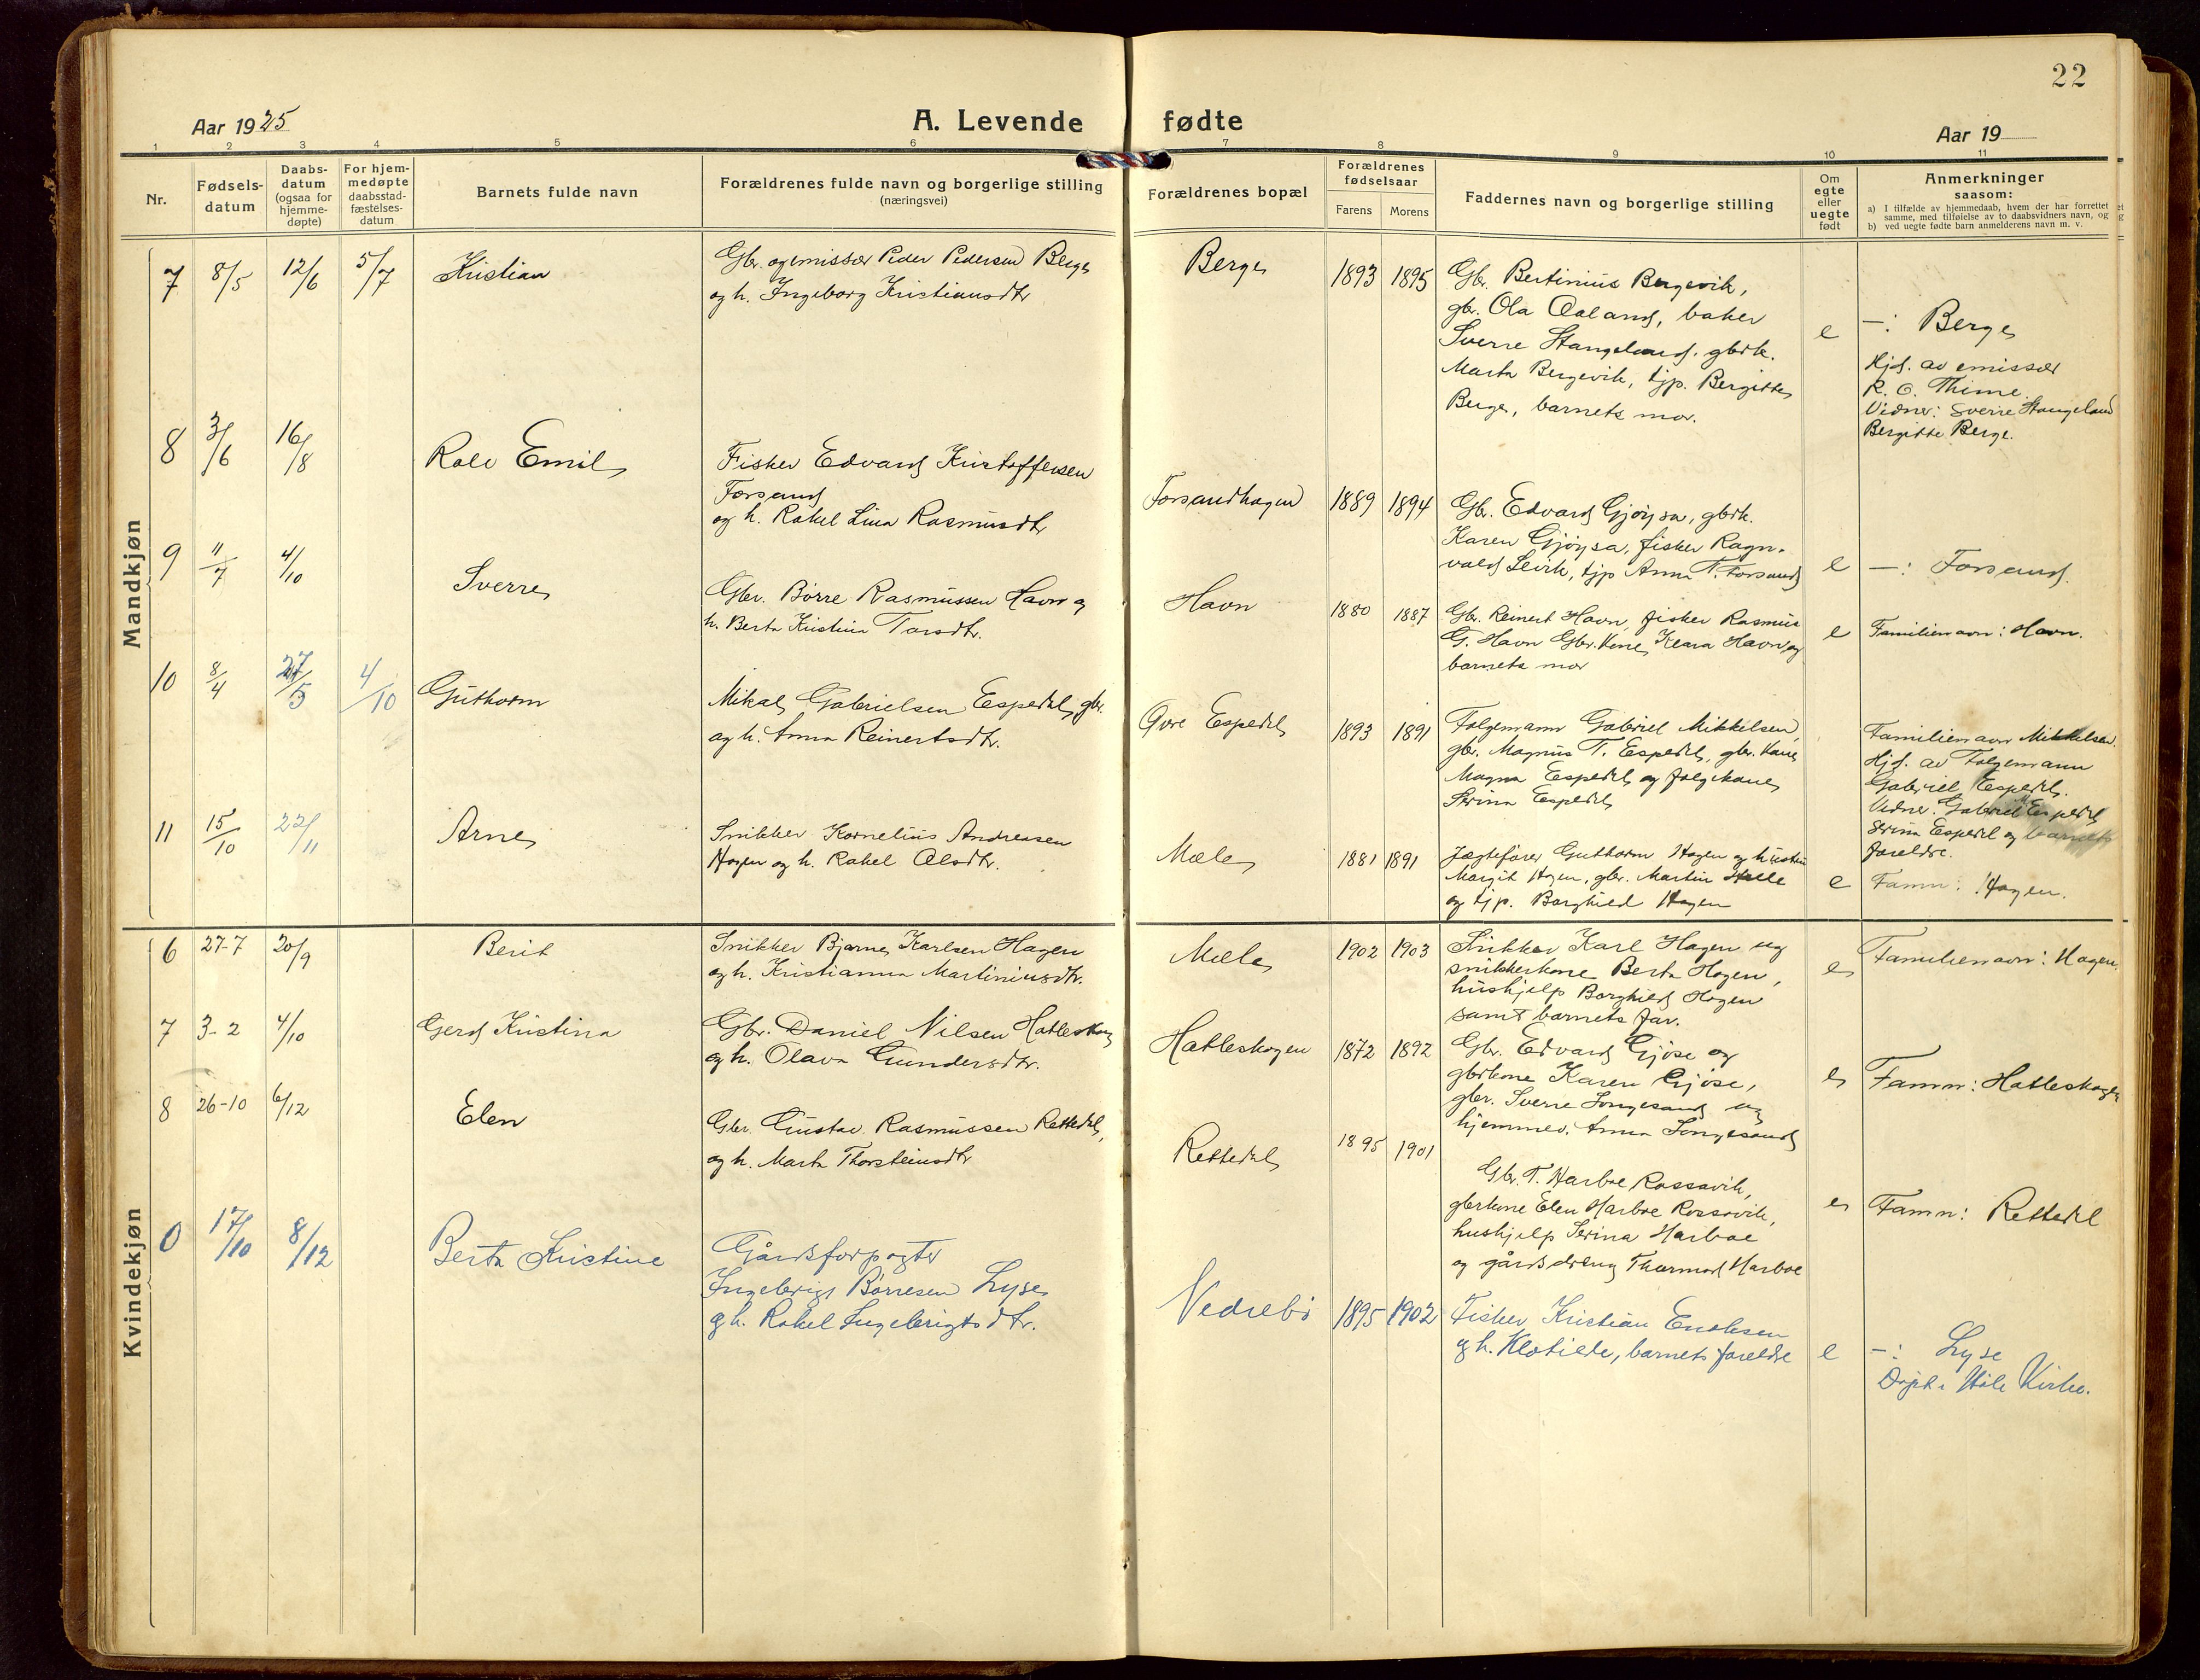 22
Aar 1925
A. Levende fødte
Aar 19
1 2 3 4 5 6 7 8 9 10 11
Nr.
Fødsels-
datum
Daabs-
datum
(ogsaa for
hjemme-
døpte)
For hjem-
medøpte
daabsstad-
fæstelses-
datum
Barnets fulde navn
Forældrenes fulde navn og borgerlige stilling
(næringsvei)
Forældrenes bopæl
Forældrenes
fødselsaar
Farens Morens
Faddernes navn og borgerlige stilling
Om
egte
eller
uegte
født
Anmerkninger
saasom:
a) I tilfælde av hjemmedaab, hvem der har forrettet
samme, med tilføielse av to daabsvidners navn, og
b) ved uegte fødte barn anmelderens navn m. v.
Mandkjøn
7 8/5 12/6 5/7 Kristian
Gbr. og emissær Peder Pedersen Berge
og h. Ingeborg Kristiansdtr
Berge 1893 1895
Gbr. Bertinius Bergevik,
gbr. Ola Aaland, baker
Sverre Stangeland, gbrk.
Marta Bergevik, tjp. Bergitte
Berge, barnets mor.
e
—: Berge
Hjd. av emissær
R. O. Thime.
Vidner: Sverre Stangeland
Bergitte Berge.
8 3/6 16/8 Rolv Emil
Fisker Edvard Kristoffersen
Forsand
og h. Rakel Lina Rasmusdtr
Forsandhagen 1889 1894
Gbr. Edvard Gjøysa, gbrk.
Karen Gjøysa, fisker Ragn-
vald Levik, tjp Anna T. Forsand
e —: Forsand.
9 11/7 4/10 Sverre
Gbr. Børre Rasmussen Havn og
h. Berta Kristina Torsdtr.
Havn 1880 1887
Gbr. Reinert Havn, fisker Rasmus
G. Havn Gbr. Kone Klara Havn og
barnets mor
e Familienavn: Havn.
10 8/4 27/5 4/10 Guthorm
Mikal Gabrielsen Espedal, gbr.
og h. Anna Reinertsdtr.
Øvre Espedal 1893 1891
Følgemann Gabriel Mikkelsen,
gbr. Magnus T. Espedal, gbr. Kone
Magna Espedal og følgekone
Serina Espedal
Familienavn Mikkelsen.
Hjd. av Følgemann
Gabriel Espedal.
Vidner Gabriel Espedal
Serina Espedal og barnets
foreldre.
11 15/10 22/11 Arne
Snikker Kornelius Andreasen
Hagen og h. Rakel Olsdtr.
Mæle 1881 1891
Jægtefører Guthorm Hagen og hustru
Margit Hagen, gbr. Martin Helle
og tjp. Borghild Hagen
e Famn: Hagen.
Kvindekjøn
6 27-7 20/9 Berit
Snikker Bjarne Karlsen Hagen
og h. Kristianna Martiniusdtr.
Mæle 1902 1903
Snikker Karl Hagen og
snikkerkone Berta Hagen,
hushjelp Borghild Hagen
samt barnets far.
e Familienavn: Hagen.
7 3-2 4/10 Gerd Kristina
Gbr. Daniel Nilsen Hatleskog
og h. Olava Gundersdtr.
Hatleskogen 1872 1892
Gbr. Edvard Gjøse og
gbrkone Karen Gjøse,
gbr. Sverre Songesand og
hjemmev. Anna Songesand
e Famn: Hatleskogen
8 26-10 6/12 Elen
Gbr. Gustav Rasmussen Rettedal,
og h. Marta Thorsteinsdtr
Rettedal 1895 1901
Gbr. T. Harboe Rossavik,
gbrkone Elen Harboe Rossavik,
hushjelp Serina Harboe
og gårdsdreng Thormod Harboe
e Famn: Rettedal
0 17/10 8/12 Berta Kristine
Gårdsforpagter
Ingebrigt Børresen Lyse
og h. Rakel Ingebrigtsdtr.
Vedrebø 1895 1902
Fisker Kristian Enoksen
og h. Klotilde, barnets foreldre
e —: Lyse
Døpt i Høle Kirke.